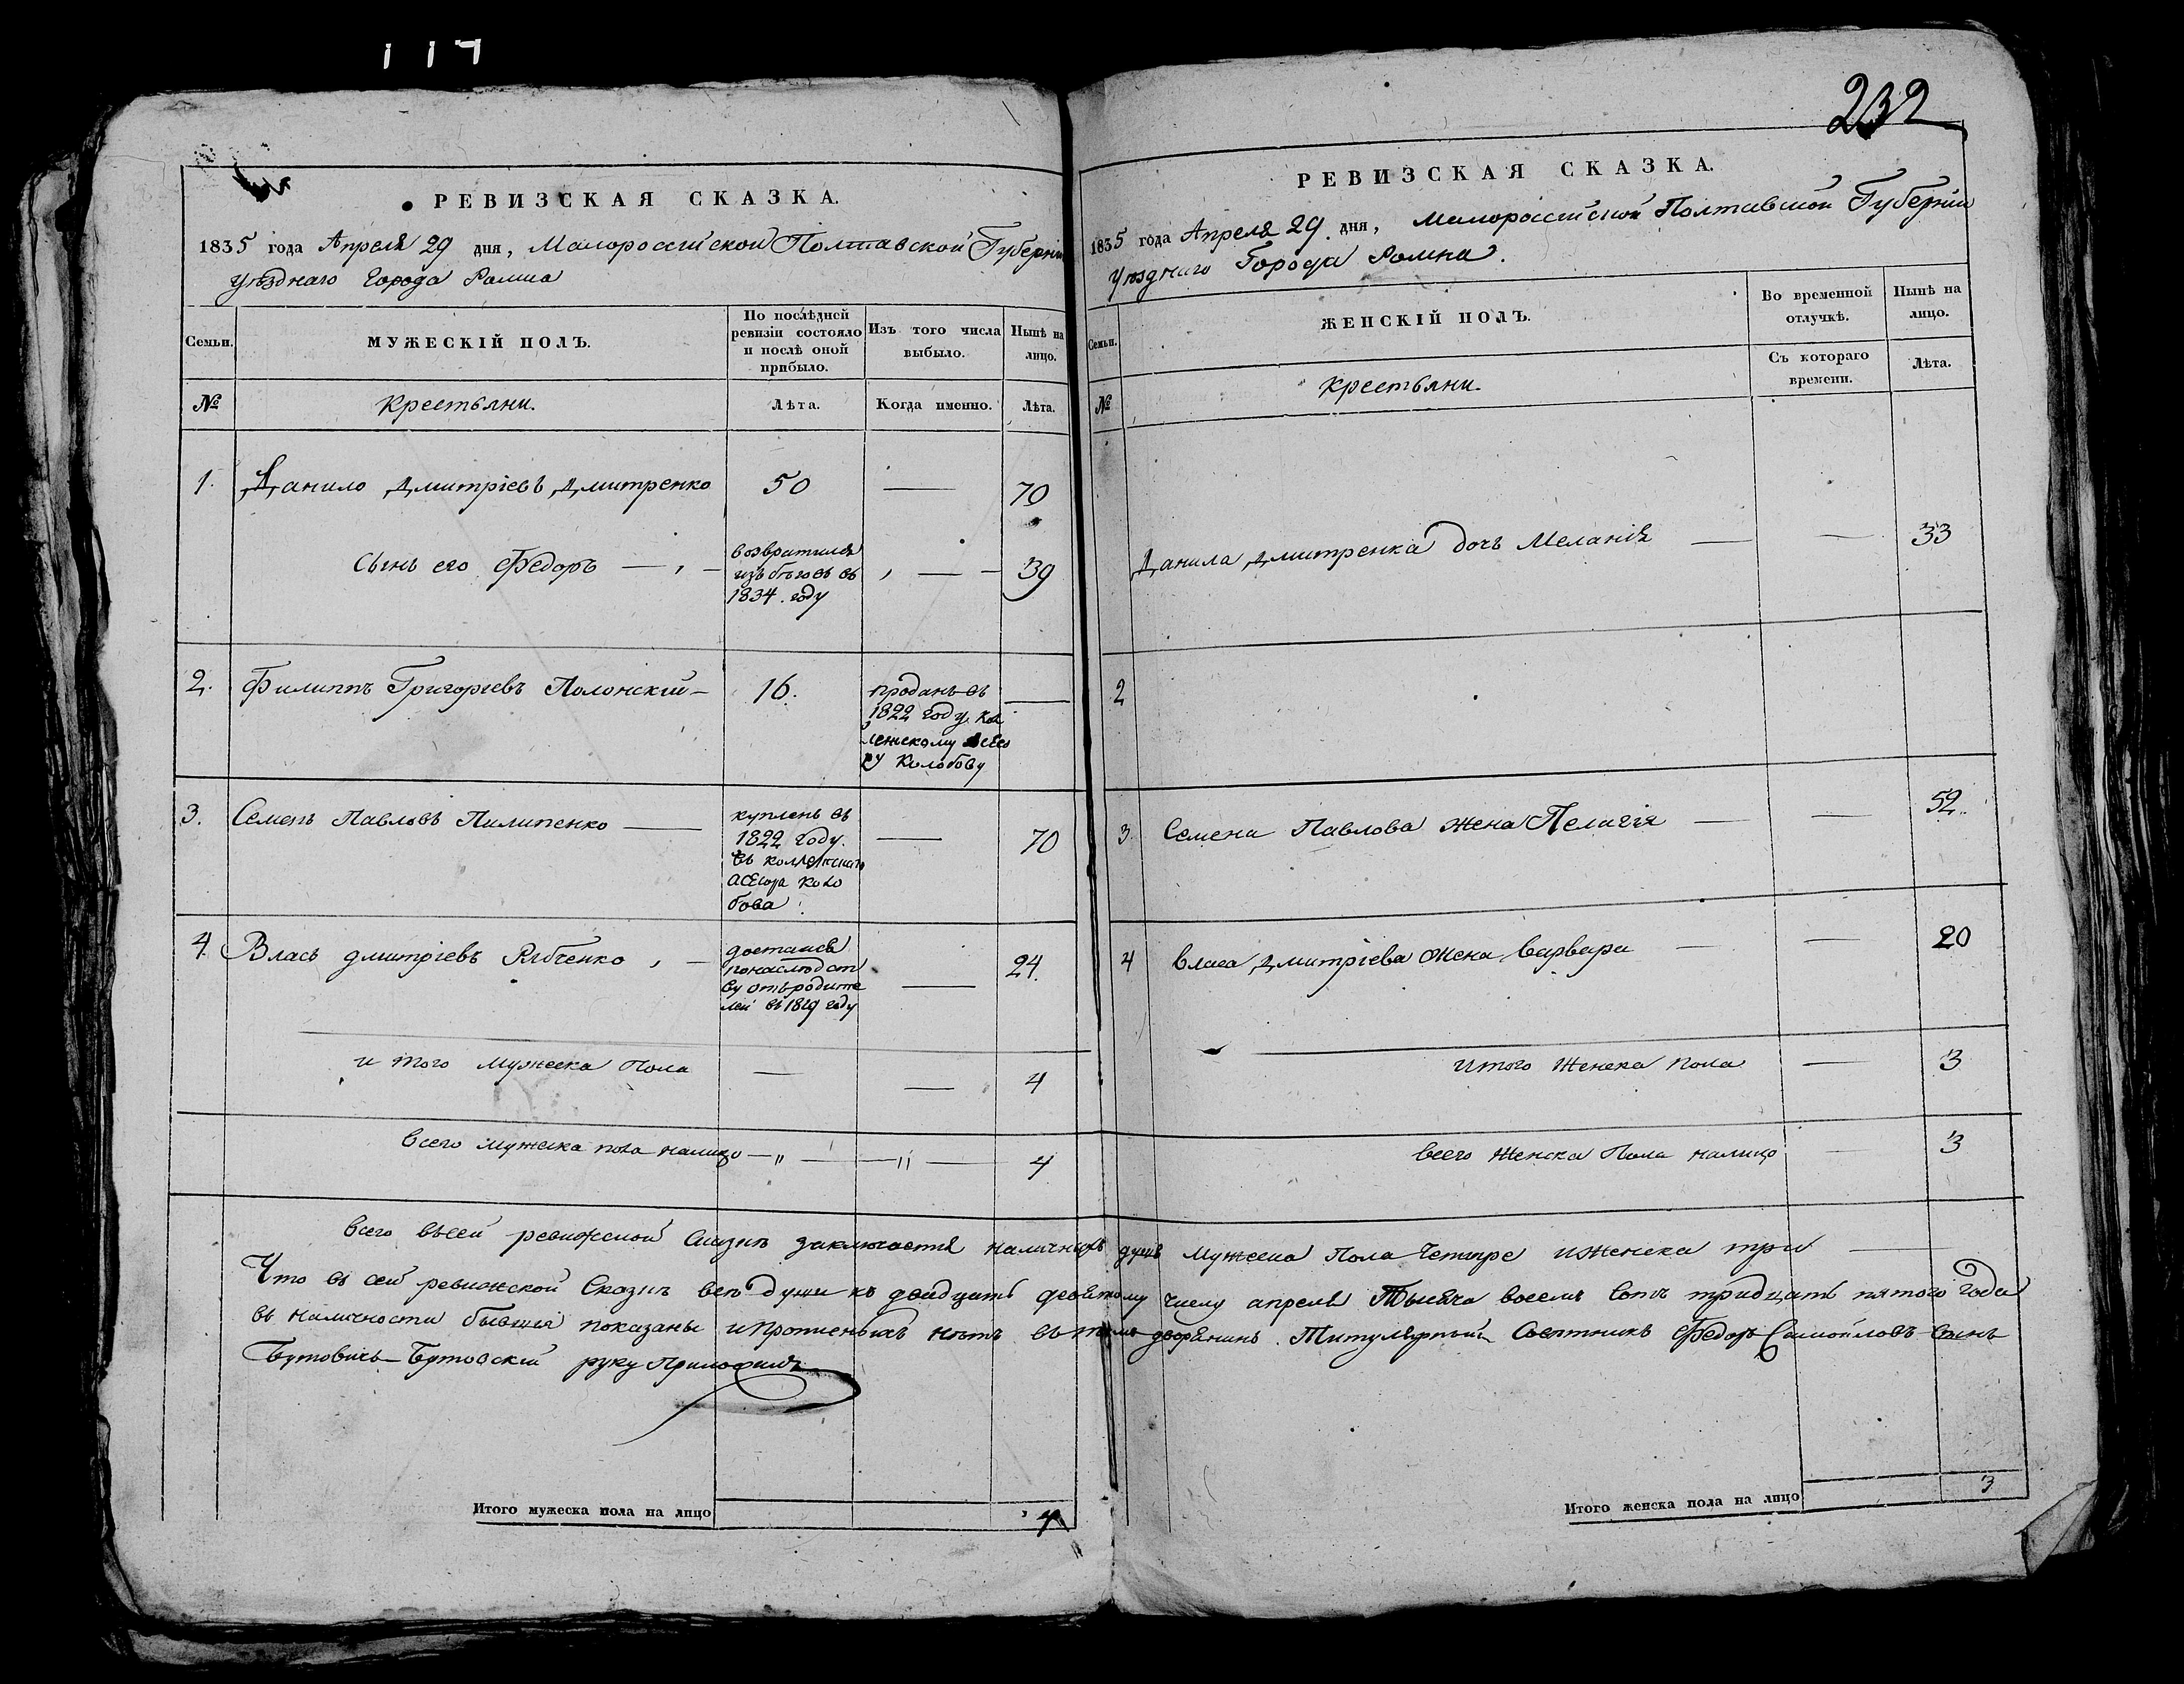 117
РЕВИЗСКАЯ СКАЗКА.
1835 года Апреля 29 дня, Малороссійской Полтавской Губерніи
уѣзднаго Города Ромна
Семьи.
МУЖЕСКІЙ ПОЛЪ.
По послѣдней
ревизіи состояло
и послѣ оной
прибыло.
Изъ того числа
выбыло.
Нынѣ на
лицо.
№
Крестьяни.
Лѣта.
Когда именно.
Лѣта.
1. Данило Дмитріевъ Дмитренко 50 — 70
сынъ его Федоръ —
возвратился
изъ бѣговъ въ
1834. году
— 39
2. Филиппъ Григоріевъ Полонскій — 16.
проданъ въ
1822 году кол
лежскому асесо
ру Колобову
—
3. Семенъ Павловъ Пилипенко —
купленъ въ
1822 году.
въ коллежскаго
асесора Коло
бова
— 70
4. Власъ дмитріевъ Рябченко —
достался
понаслѣдст
ву отъ родите
лей въ 1829 году
— 24.
и того мужеска Пола — — 4
Всего мужеска пола налицо — " — — " — 4
Итого мужеска пола на лицо 4
232
РЕВИЗСКАЯ СКАЗКА.
1835 года Апреля 29 дня, Малороссійской Полтавской Губерніи
уѣзднаго Города Ромна.
Семьи.
ЖЕНСКІЙ ПОЛЪ.
Во временной
отлучкѣ.
Нынѣ на
лицо.
Съ котораго
времени.
Лѣта.
№
Крестьяни.
Данила Дмитренка дочь Меланія — — 33
2
3. Семена Павлова жена Пелагія — — 52.
4 Власа Дмитріева жена Варвара — — 20
Итого Женска пола — 3
Всего Женска Пола налицо — 3
Всего въсей ревижской сказкѣ заключается наличныхъ душъ мужеска Пола Четыре иженска три —
Что въ сей ревижской Сказкѣ всѣ души къ двадцать девятому числу апреля Тысяча восемь сотъ тридцать пятого Года
въ наличности бывшія показаны ипрописныхъ нѣтъ въ томъ дворянинъ. Титулярный Совѣтникъ Федоръ Самойловъ Сынъ
Бутовичь-Бутовскій руку Приложилъ
Итого женска пола на лицо 3